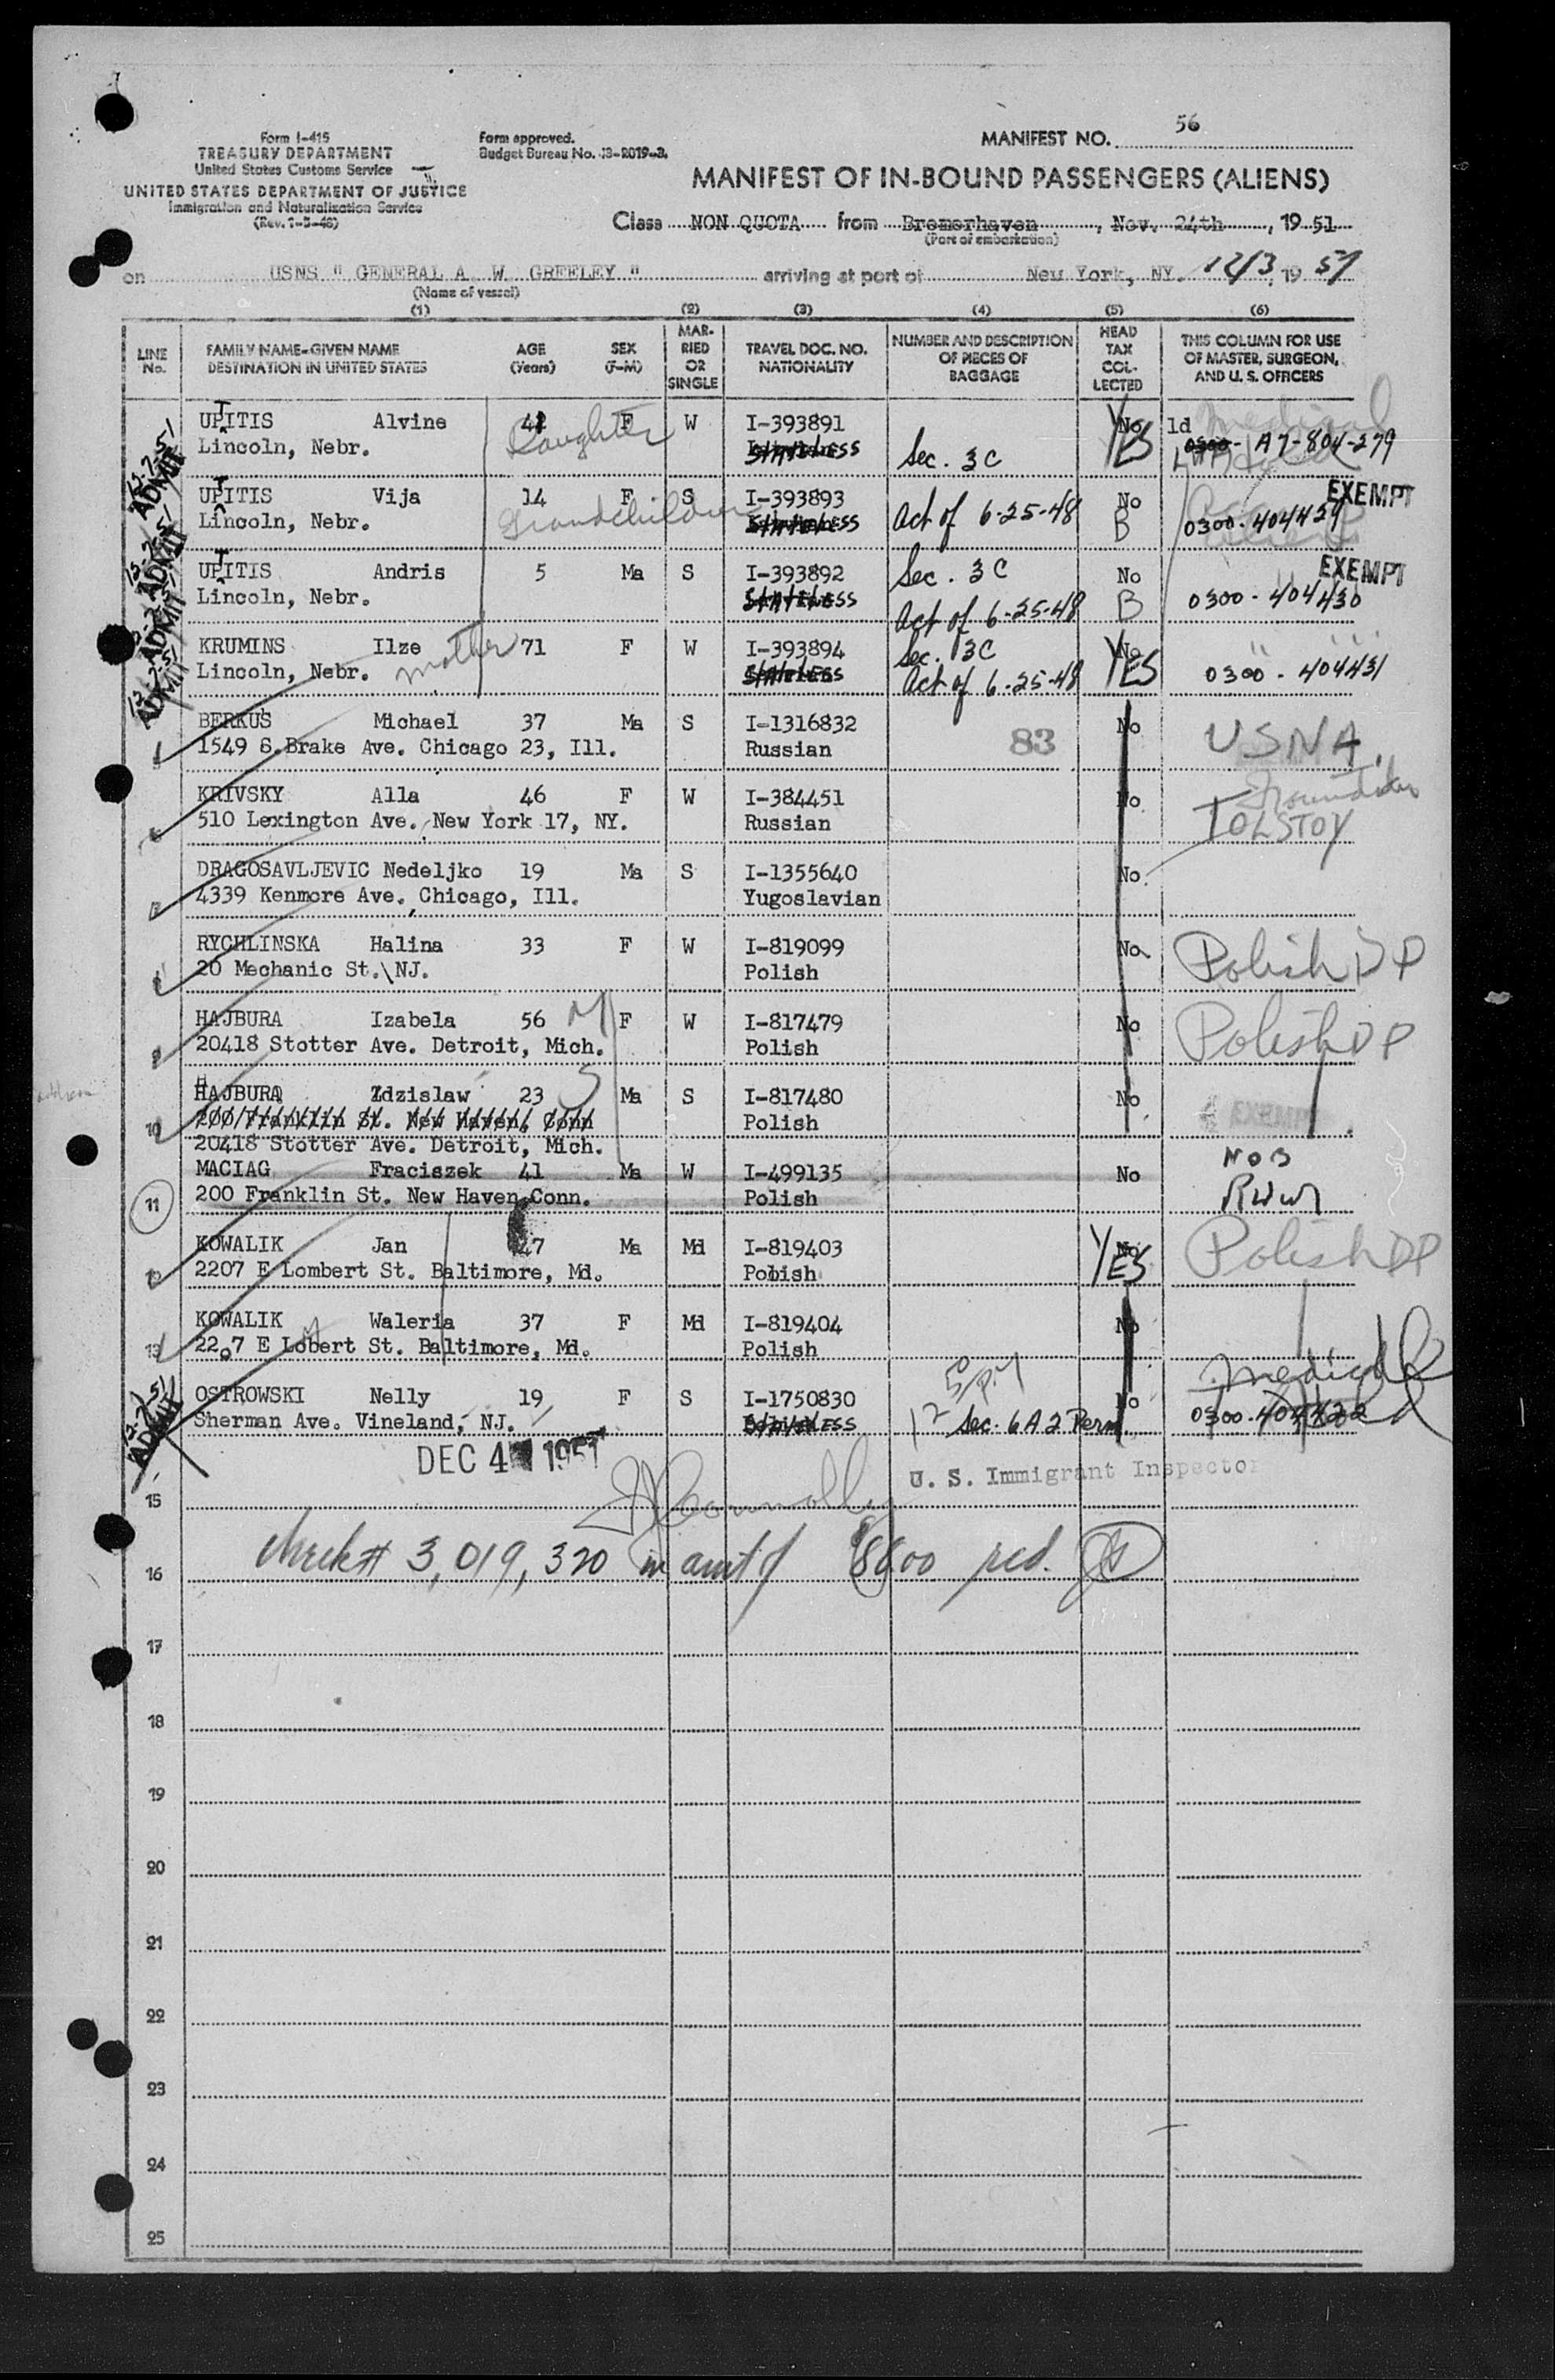 56
Form I-415
TREASURY DEPARTMENT
United States Customs Service
UNITED STATES DEPARTMENT OF JUSTICE
Immigration and Naturalization Service
(Rev. 1-5-48)
Form approved.
Budget Bureau No. 43-R019-3.
MANIFEST NO.
MANIFEST OF IN-BOUND PASSENGERS (ALIENS)
Class NON QUOTA from Bremerhaven, Nov. 24th, 1951
(Port of embarkation)
on USNS " GENERAL A. W. GREELEY " arriving at port of New York, NY. 12/3, 1951
(Name of vessel)
(1) (2) (3) (4) (5) (6)
LINE No. FAMILY NAME-GIVEN NAME DESTINATION IN UNITED STATES AGE (Years) SEX (F-M) MARRIED OR SINGLE TRAVEL DOC. NO. NATIONALITY NUMBER AND DESCRIPTION OF PIECES OF BAGGAGE HEAD TAX COLLECTED THIS COLUMN FOR USE OF MASTER, SURGEON, AND U. S. OFFICERS
UPITIS Alvine 42 F W I-393891 No YES ld Medical
Lincoln, Nebr. Daughter STATELESS Sec. 3C 0300- A7-804-279
UPITIS Vija 14 F S I-393893 Act of 6-25-48 No EXEMPT
Lincoln, Nebr. Grandchildren STATELESS B 0300-404429
UPITIS Andris 5 Ma S I-393892 Sec. 3C No EXEMPT
Lincoln, Nebr. STATELESS Act of 6-25-48 B 0300-404430
KRUMINS Ilze 71 F W I-393894 Sec. 3C No YES
Lincoln, Nebr. mother STATELESS Act of 6-25-48 0300-404431
BERKUS Michael 37 Ma S I-1316832 83 No USNA
1549 S.Brake Ave. Chicago 23, Ill. Russian
KRIVSKY Alla 46 F W I-384451 No
510 Lexington Ave. New York 17, NY. Russian TOLSTOY
DRAGOSAVLJEVIC Nedeljko 19 Ma S I-1355640 No
4339 Kenmore Ave. Chicago, Ill. Yugoslavian
RYCHLINSKA Halina 33 F W I-819099 No Polish DP
20 Mechanic St. NJ. Polish
HAJBURA Izabela 56 M F W I-817479 No Polish DP
20418 Stotter Ave. Detroit, Mich. Polish
HAJBURA Zdzislaw 23 S Ma S I-817480 No EXEMPT
200 Franklin St. New Haven, Conn Polish
10
20418 Stotter Ave. Detroit, Mich.
MACIAG Fraciszek 41 Ma W I-499135 No NOB
11 200 Franklin St. New Haven Conn. Polish
KOWALIK Jan 47 Ma Md I-819403 No YES Polish DP
2207 E Lombert St. Baltimore, Md. Polish
KOWALIK Waleria 37 F Md I-819404 No
2207 E Lobert St. Baltimore, Md. Polish
OSTROWSKI Nelly 19 F S I-1750830 No Medical
Sherman Ave. Vineland, NJ. STATELESS Sec. 6A2 Perm.
ADMIT
DEC 4 1951
U. S. Immigrant Inspector
15
check# 3,019,320 in amt of
16
17
18
19
20
21
22
23
24
25